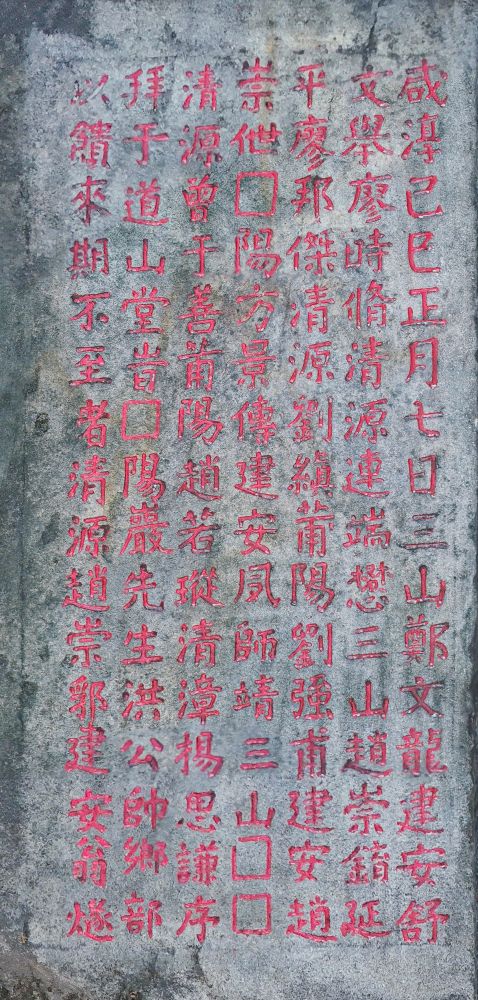 咸淳己巳正月七日三山鄭文龍建安舒
文舉廖時脩清源連端懋三山趙崇錯延
平廖邦傑清源劉縝莆陽劉強甫建安趙
崇伳□陽方景傳建安夙師靖三山□□
清源曾于善莆陽趙若瑽清漳楊思謙序
拜于道山堂旹□陽巖先生洪公帥鄉部
以饋來期不至者清源趙崇郛建安翁燧